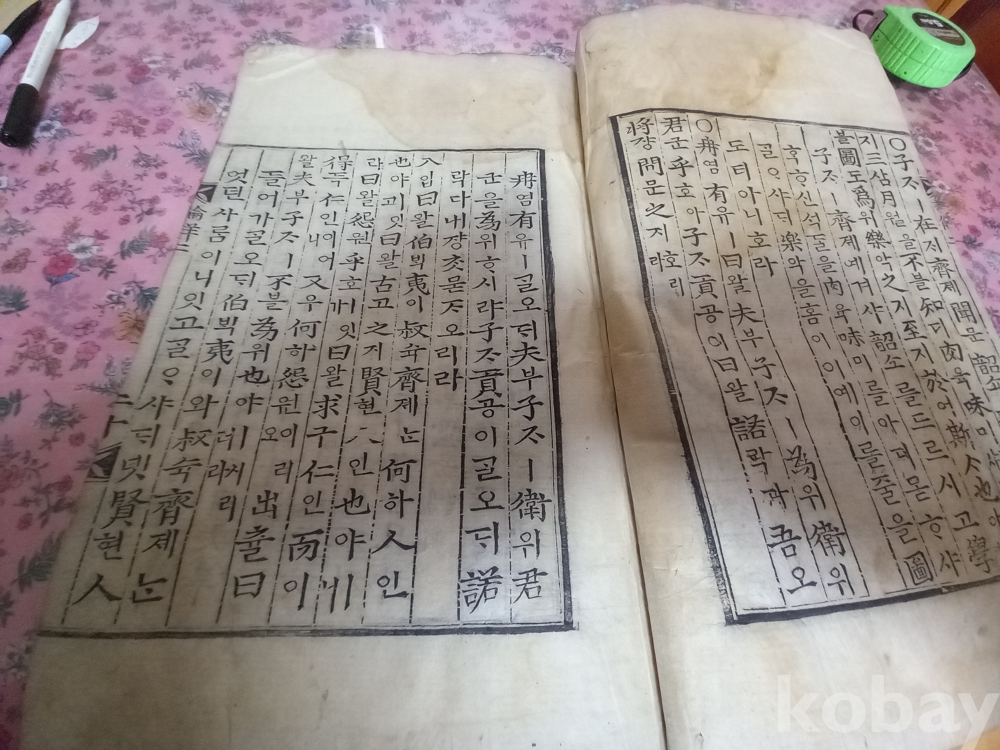 ○子ᄌᆞㅣ在ᄌᆡ齊졔聞문韶쇼
지三삼月월을不블知디肉육味미
블圖도爲위樂악之지至지於어斯ᄉᆞ也야
子ᄌᆞㅣ齊졔예겨샤韶쇼를드르시고學
ᄒᆞ신석ᄃᆞᆯ을肉육味미를아디몯ᄒᆞ샤
ᄀᆞᆯᄋᆞ샤ᄃᆡ樂악을홈이이예니를줄을圖
도티아니호라
○冉염有유ㅣ曰왈夫부子ᄌᆞㅣ爲위衛위
君군乎호아子ᄌᆞ貢공이曰왈諾락다吾오
將쟝問문之지호리라
冉염有유ㅣᄀᆞᆯ오ᄃᆡ夫부子ᄌᆞㅣ衛위君
군을爲위ᄒᆞ시랴子ᄌᆞ貢공이ᄀᆞᆯ오ᄃᆡ諾
락다내쟝ᄎᆞᆺ묻ᄌᆞ오리라
入입曰왈伯ᄇᆡᆨ夷이叔슉齊졔ᄂᆞᆫ何하人인
也야ㅣ잇고曰왈古고之지賢현人인也야ㅣ니
라曰왈怨원乎호ㅣ잇가曰왈求구仁인而이
得득仁인이어니又우何하怨원이리오出츌曰
왈夫부子ᄌᆞㅣ不블爲위也야ㅣ시리러라
들어가ᄀᆞᆯ오ᄃᆡ伯ᄇᆡᆨ夷이와叔슉齊졔ᄂᆞᆫ
엇던사ᄅᆞᆷ이니잇고ᄀᆞᆯᄋᆞ샤ᄃᆡ녯賢현人
kobay